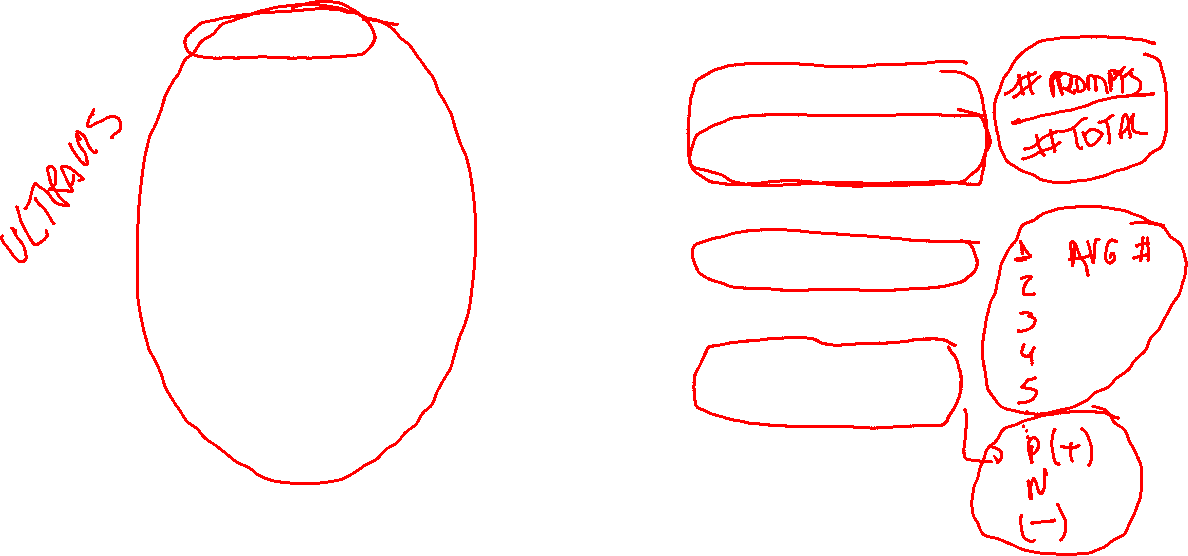 ULTRAVIS
# PROMPTS
# TOTAL
1 AVG #
2
3
4
5
P (+)
N
(-)